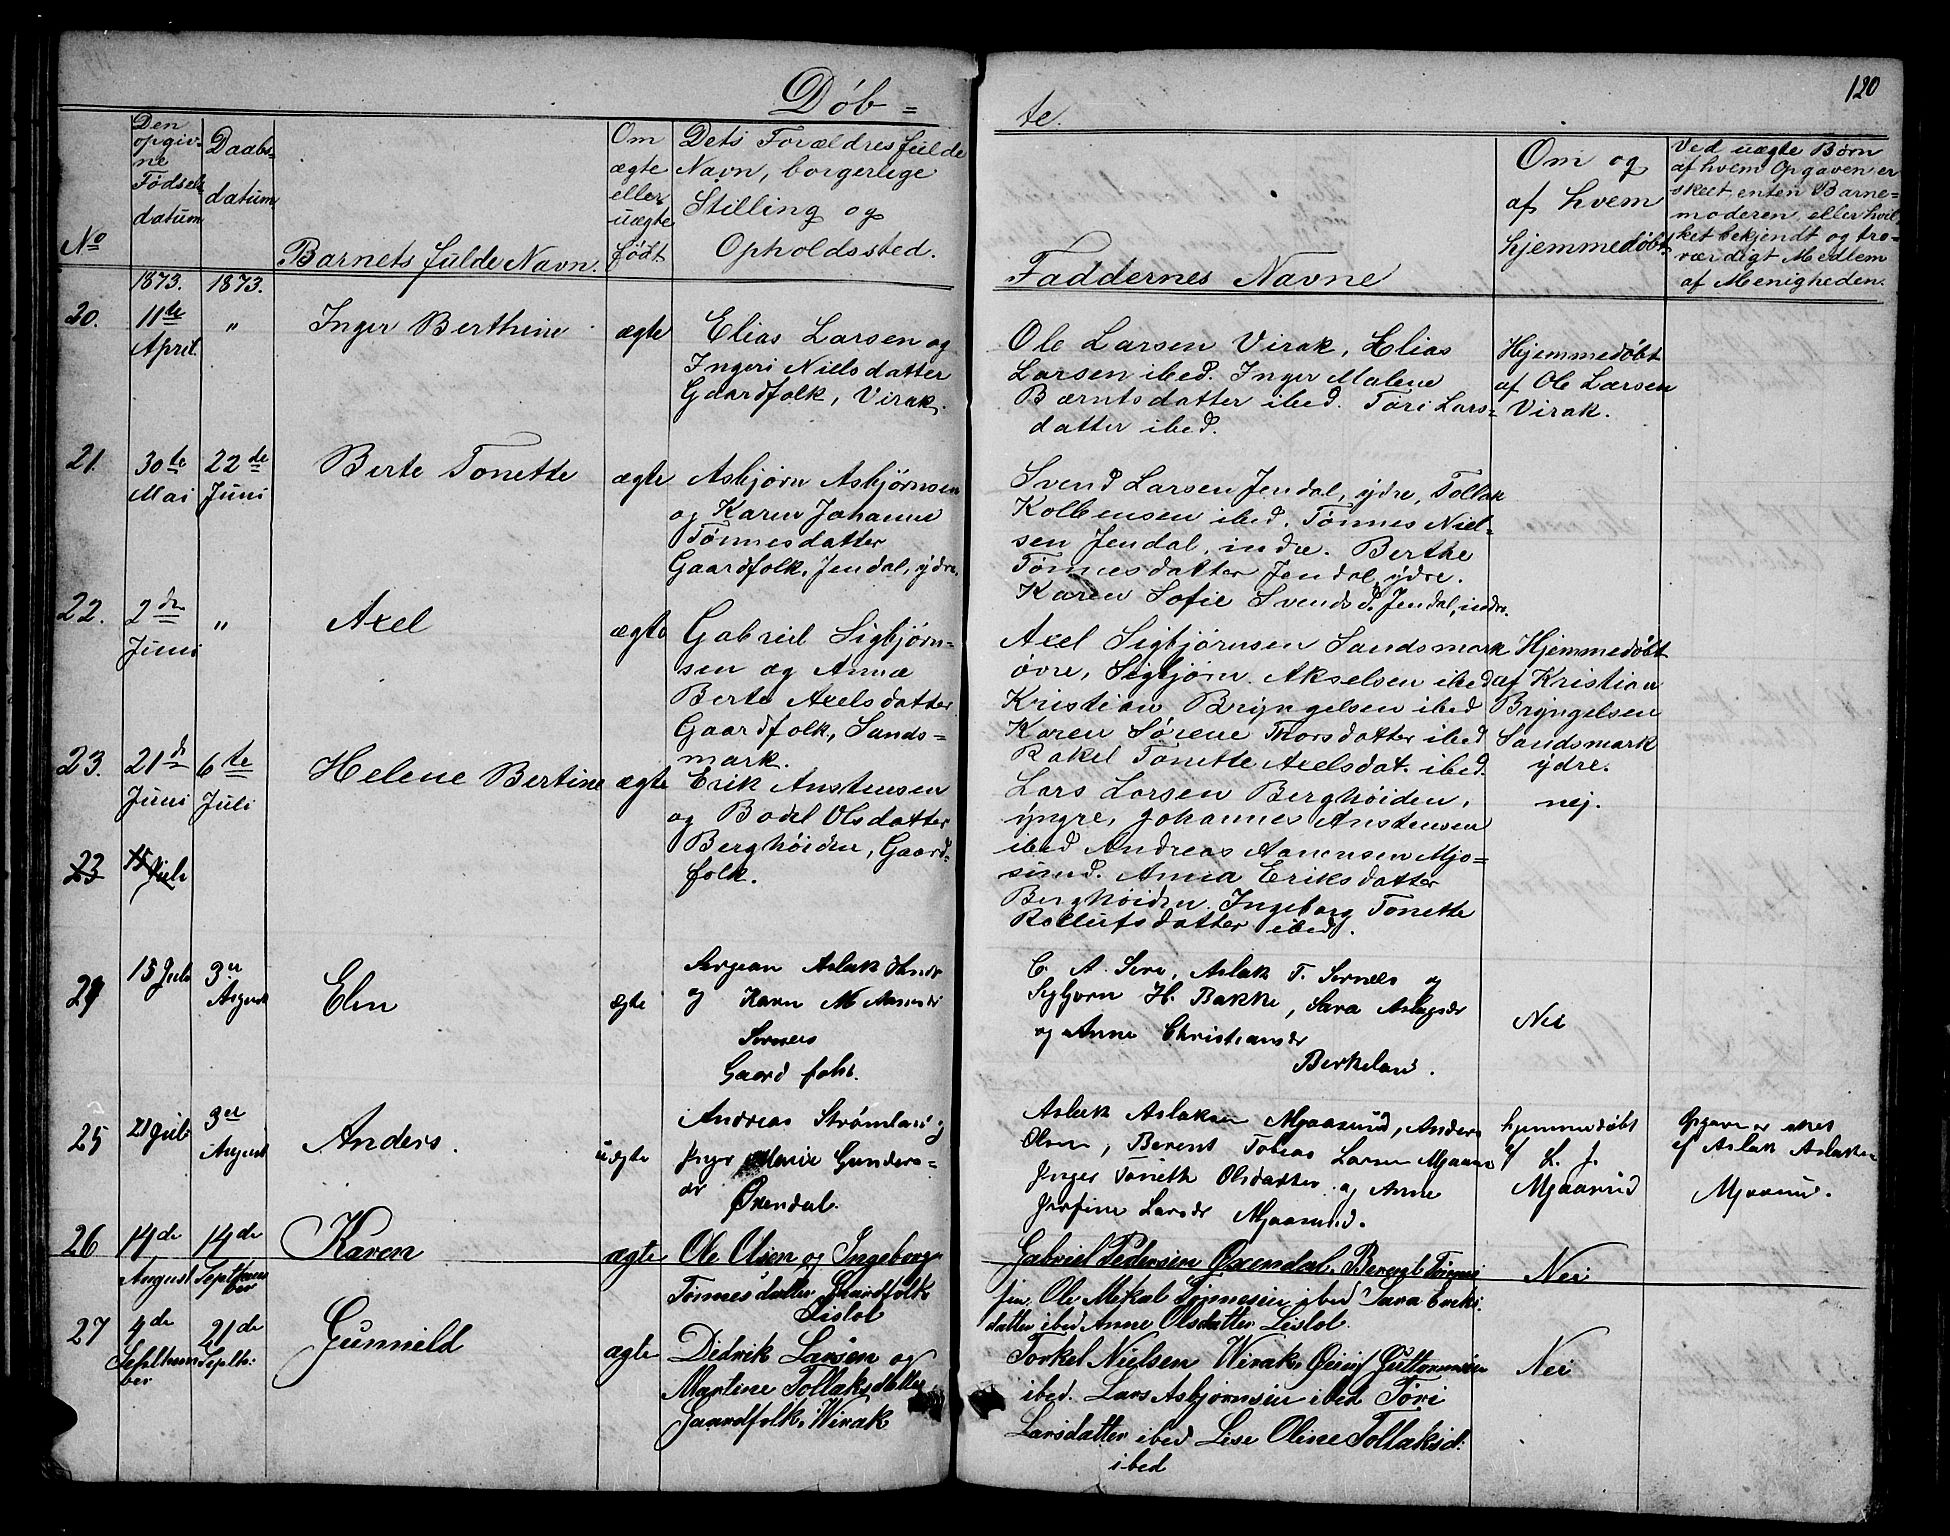 120
Døb=
te.
No
Den opgiv-
ne
Fødsels
datum
Daabs-
datum
Barnets fulde Navn.
Om
ægte
eller
uægte
født
Dets Forældres fulde
Navn, borgerlige
Stilling og
Opholdssted.
Faddernes Navne
Om og
af hvem
hjemmedøbt
Ved uægte Børn
af hvem Opgaven er
skeet, enten Barne=
moderen, eller hvil
ket bekjendt og tro-
værdigt Medlem
af Menigheden.
1873. 1873.
20. 11te
April
"
Inger Berthine
ægte
Elias Larsen og
Ingeri Nielsdatter
Gaardfolk, Virak.
Ole Larsen Virak, Elias
Larsen ibed. Inger Malene
Bærntsdatter ibed. Tori Lars=
datter ibed.
Hjemmedøbt
af Ole Larsen
Virak.
21. 30te
Mai
22de
Juni
Berte Tonette
ægte
Asbjørn Asbjørnsen
og Karen Johanne
Tønnesdatter
Gaardfolk, Jendal, ydre.
Svend Larsen Jendal, ydre, Tollak
Kolbensen ibed. Tønnes Niel=
sen Jendal, indre. Berthe
Tønnesdatter Jendal, ydre.
Karen Sofie Svendsd. Jendal, indre.
22. 2den
Juni
"
Axel
ægte
Gabriel Sigbjørn-
sen og Anna
Berte Axelsdatter
Gaardfolk, Sands=
mark.
Axel Sigbjørnsen Sandsmark
øvre, Sigbjørn Akselsen ibed
Kristian Bryngelsen ibed
Karen Sørene Thorsdatter ibed
Rakel Tonette Axelsdat. ibed.
Hjemmedøbt
af Kristian
Bryngelsen
Sandsmark
ydre.
23. 21d
Juni
6te
Juli
Helene Bertine
ægte
Erik Anstensen
og Bodil Olsdatter
Berghøiden, Gaard=
folk.
Lars Larsen Berghøiden,
yngre, Johannes Anstensen
ibed Andreas Aanensen Mjo=
sund. Anna Eriksdatter
Berghøiden. Ingeborg Tonette
Rollufsdatter ibed.
nej.
23 15 Juli
24 15 Juli
3die
August
Elen
ægte
Aslak
og Karen
Gaard folk.
C. A. Aslak T. og
H. Bakke, Sara Aslagsdr
og Anne Christiansdr
Berkeland.
Nei
25 21 Juli
3die
August
Anders.
uægte
Andreas Strømland og
Inger Marie Gunders=
dr
Øxendal.
Aslak Aslaksen Mjaasund, Anders
Olsen, Berent Tobias Larsen
Inger Tonette Olsdatter og Anne
Josefine Larsdr Mjaasund.
hjemmedøbt
af L. J.
Mjaasund
Opgaven er skeet
af Aslak Aslaksen
Mjaasund.
26 14de
August
14de
Septhem
ber
Karen
ægte
Ole Olsen og Ingeborg
Tønnesdatter Gaardfolk
Lislol
Gabriel Pedersen Øxendal. Berent
Ole Mikal Tønnesen ibed Sara Eriks
datter ibed Anne Olsdatter Lislol.
Nei
27 4de
Septhem
ber
21de
Septh:
Gunneld
ægte
Didrik Larsen og
Martine Tollaksdatter
Gaardfolk, Wirak
Torkel Nielsen Wirak, Guttormsen
ibed. Lars Asbjørnsen ibed Tori
Larsdatter ibed Lise Oline Tollaksd:
ibed
Nei